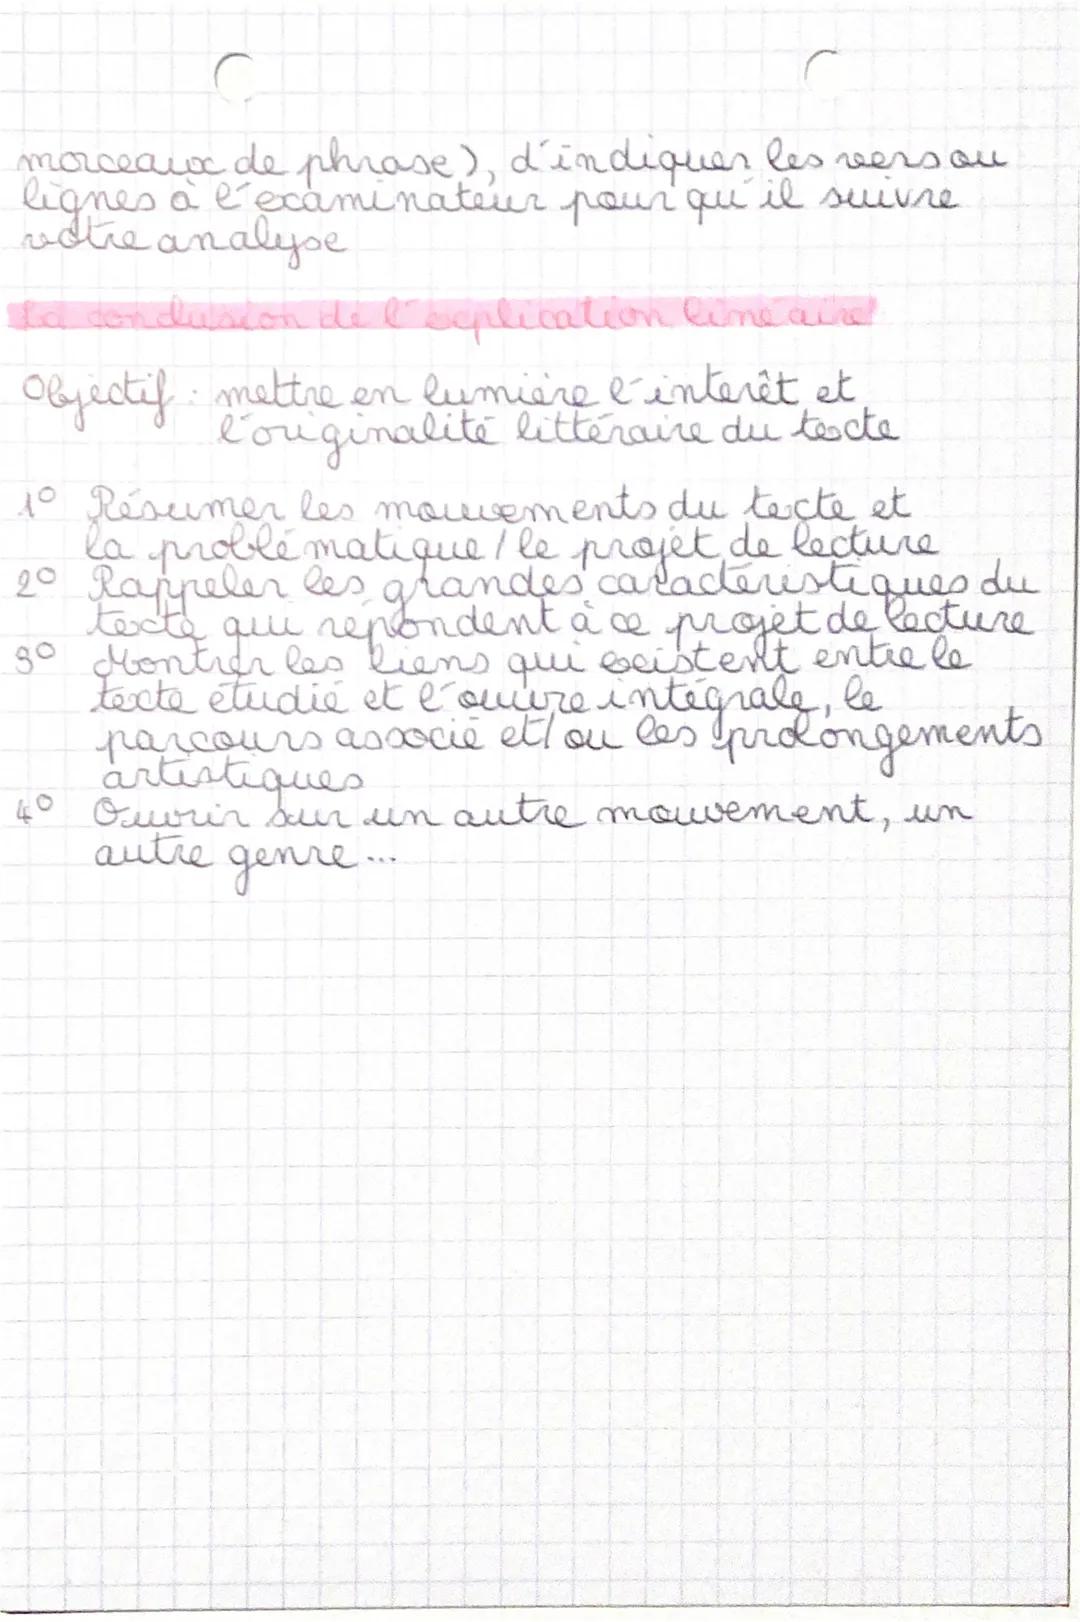 morceaux de phrase), d'indiquer les vers ou
lignes à l'examinateur pour qu'il suivre
votre analyse
La conclusion de l'explication linéaire
Objectif : mettre en lumière l'interêt et
l'originalité littéraire du texte
1° Résumer les mouvements du texte et
la problématique / le projet de lecture
2° Rappeler les grandes caractéristiques du
texte qui répondent à ce projet de lecture
3° Montrer les liens qui existent entre le
texte étudié et l'œuvre intégrale, le
parcours associé et/ou les prolongements
artistiques
4° Ouvrir sur un autre mouvement, un
autre genre...